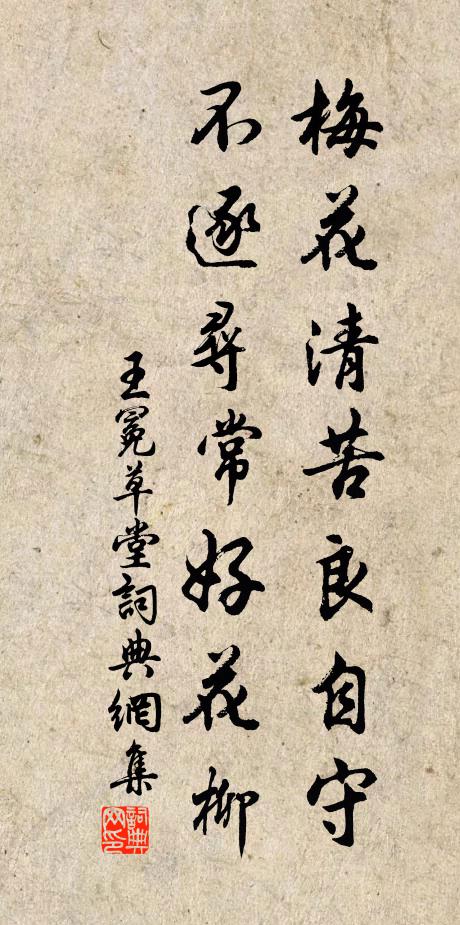 梅花清苦良自守
不逐尋常好花柳
王冕草堂詞典網集
詞典網印